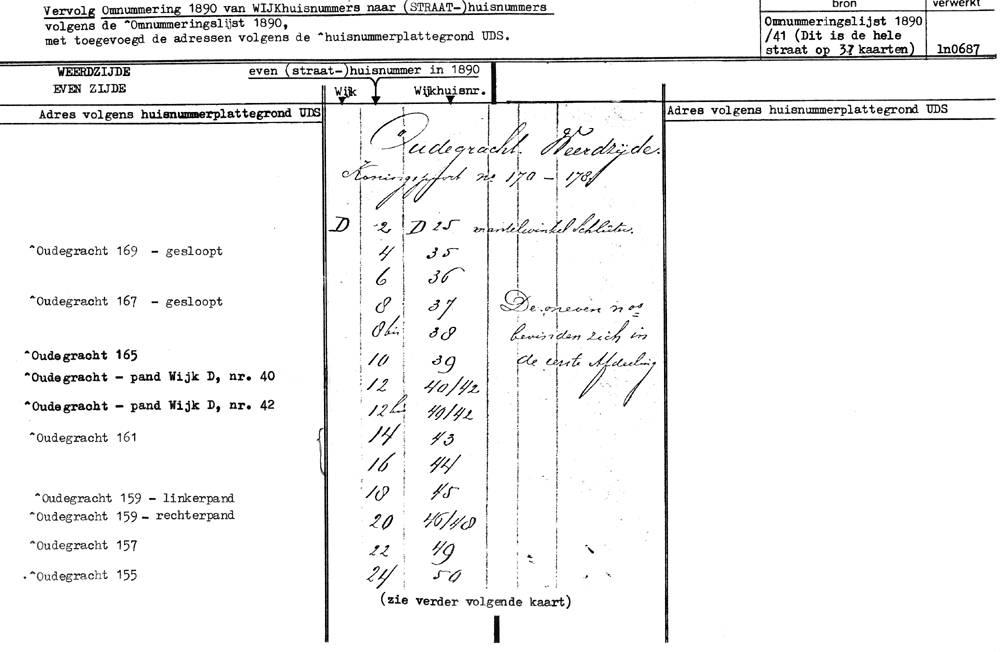 Vervolg Omnummering 1890 van WIJKhuisnummers naar (STRAAT-)huisnummers
volgens de ^Omnummeringslijst 1890,
met toegevoegd de adressen volgens de ^huisnummerplattegrond UDS.
bron
verwerkt
Omnummeringslijst 1890
/41 (Dit is de hele
straat op 37 kaarten)
1n0687
WEERDZIJDE
EVEN ZIJDE
even (straat-)huisnummer in 1890
Wijk
Wijkhuisnr.
Adres volgens huisnummerplattegrond UDS
Adres volgens huisnummerplattegrond UDS
Oudegracht Weerdzijde.
no 170 - 178
D 2 D 25 mantelwinkel Schlüter.
^Oudegracht 169 - gesloopt 4 35
6 36
^Oudegracht 167 - gesloopt 8 37 De oneven nos
8bis 38 bevinden zich in
^Oudegracht 165 10 39 de eerste Afdeeling
^Oudegracht - pand Wijk D, nr. 40 12 40/42
^Oudegracht - pand Wijk D, nr. 42 12bis 40/42
^Oudegracht 161 14 43
16 44
^Oudegracht 159 - linkerpand 18 45
^Oudegracht 159 - rechterpand 20 46/48
^Oudegracht 157 22 49
^Oudegracht 155 24 50
(zie verder volgende kaart)